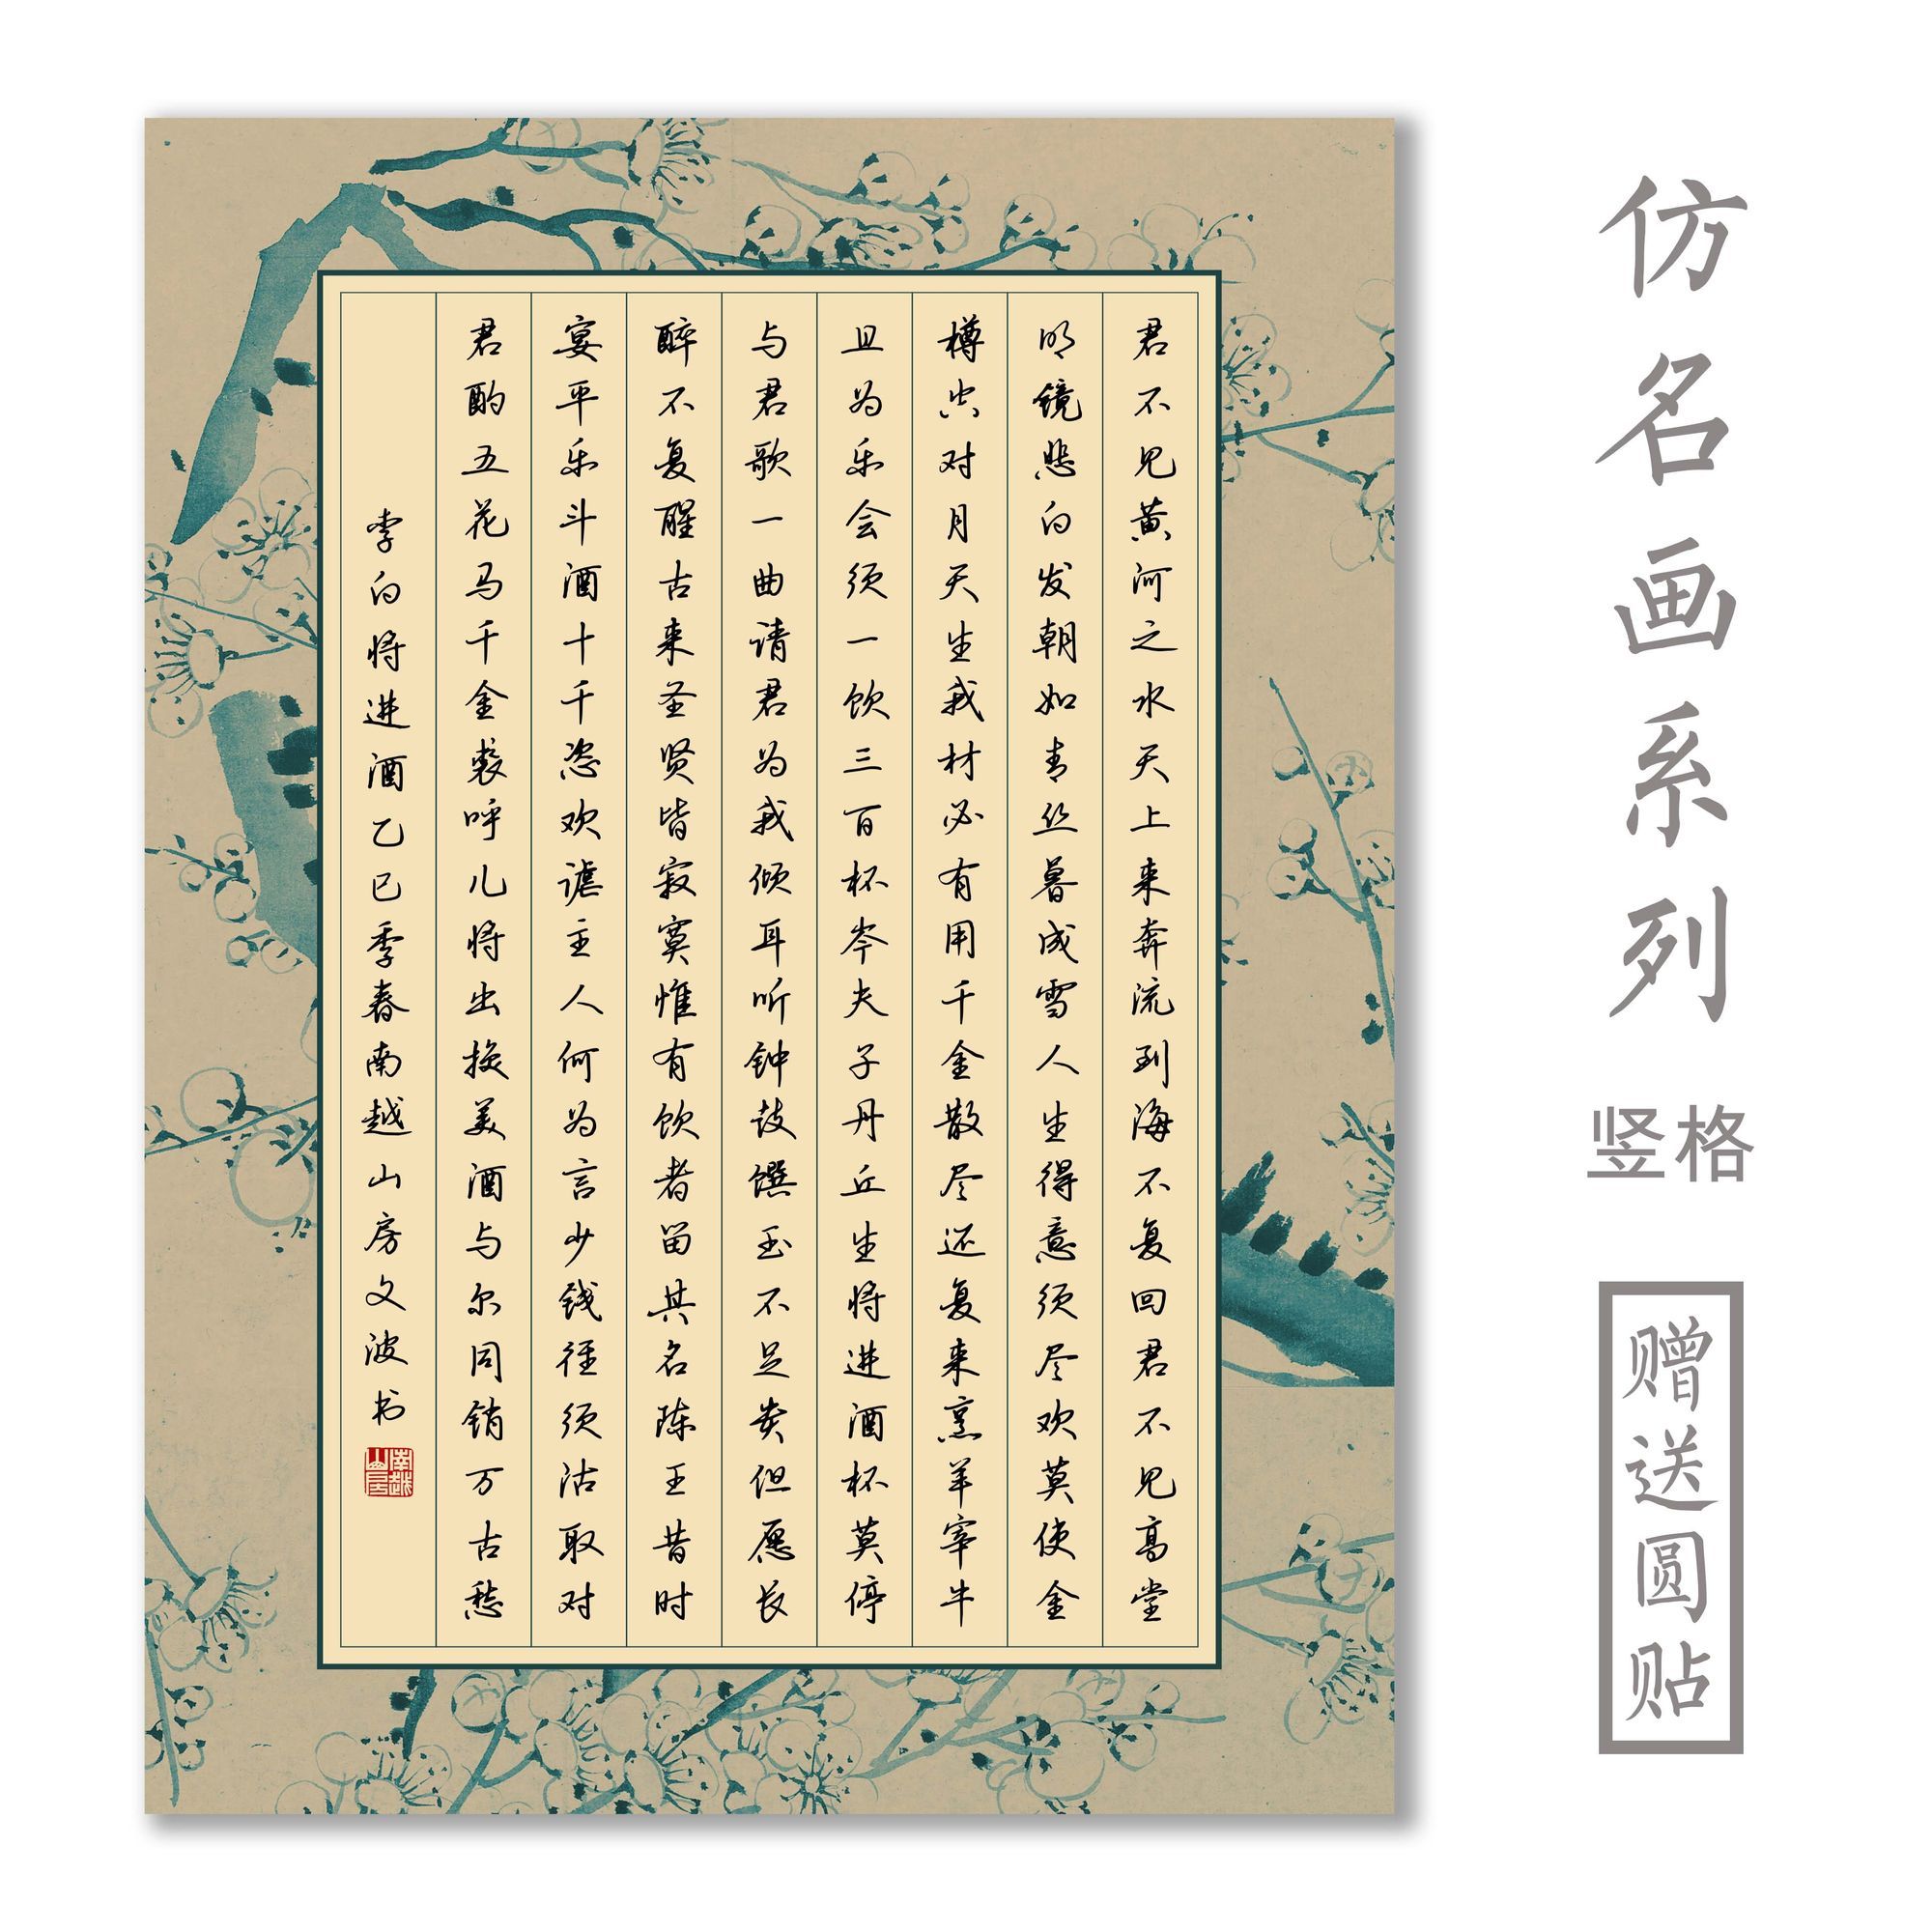 君不见黄河之水天上来奔流到海不复回君不见高堂
明镜悲白发朝如青丝暮成雪人生得意须尽欢莫使金
樽空对月天生我材必有用千金散尽还复来烹羊宰牛
且为乐会须一饮三百杯岑夫子丹丘生将进酒杯莫停
与君歌一曲请君为我倾耳听钟鼓馔玉不足贵但愿长
醉不复醒古来圣贤皆寂寞惟有饮者留其名陈王昔时
宴平乐斗酒十千恣欢谑主人何为言少钱径须沽取对
君酌五花马千金裘呼儿将出换美酒与尔同销万古愁
李白将进酒乙巳季春南越山房文波书
南越山房
仿名画系列
竖格
赠送圆贴